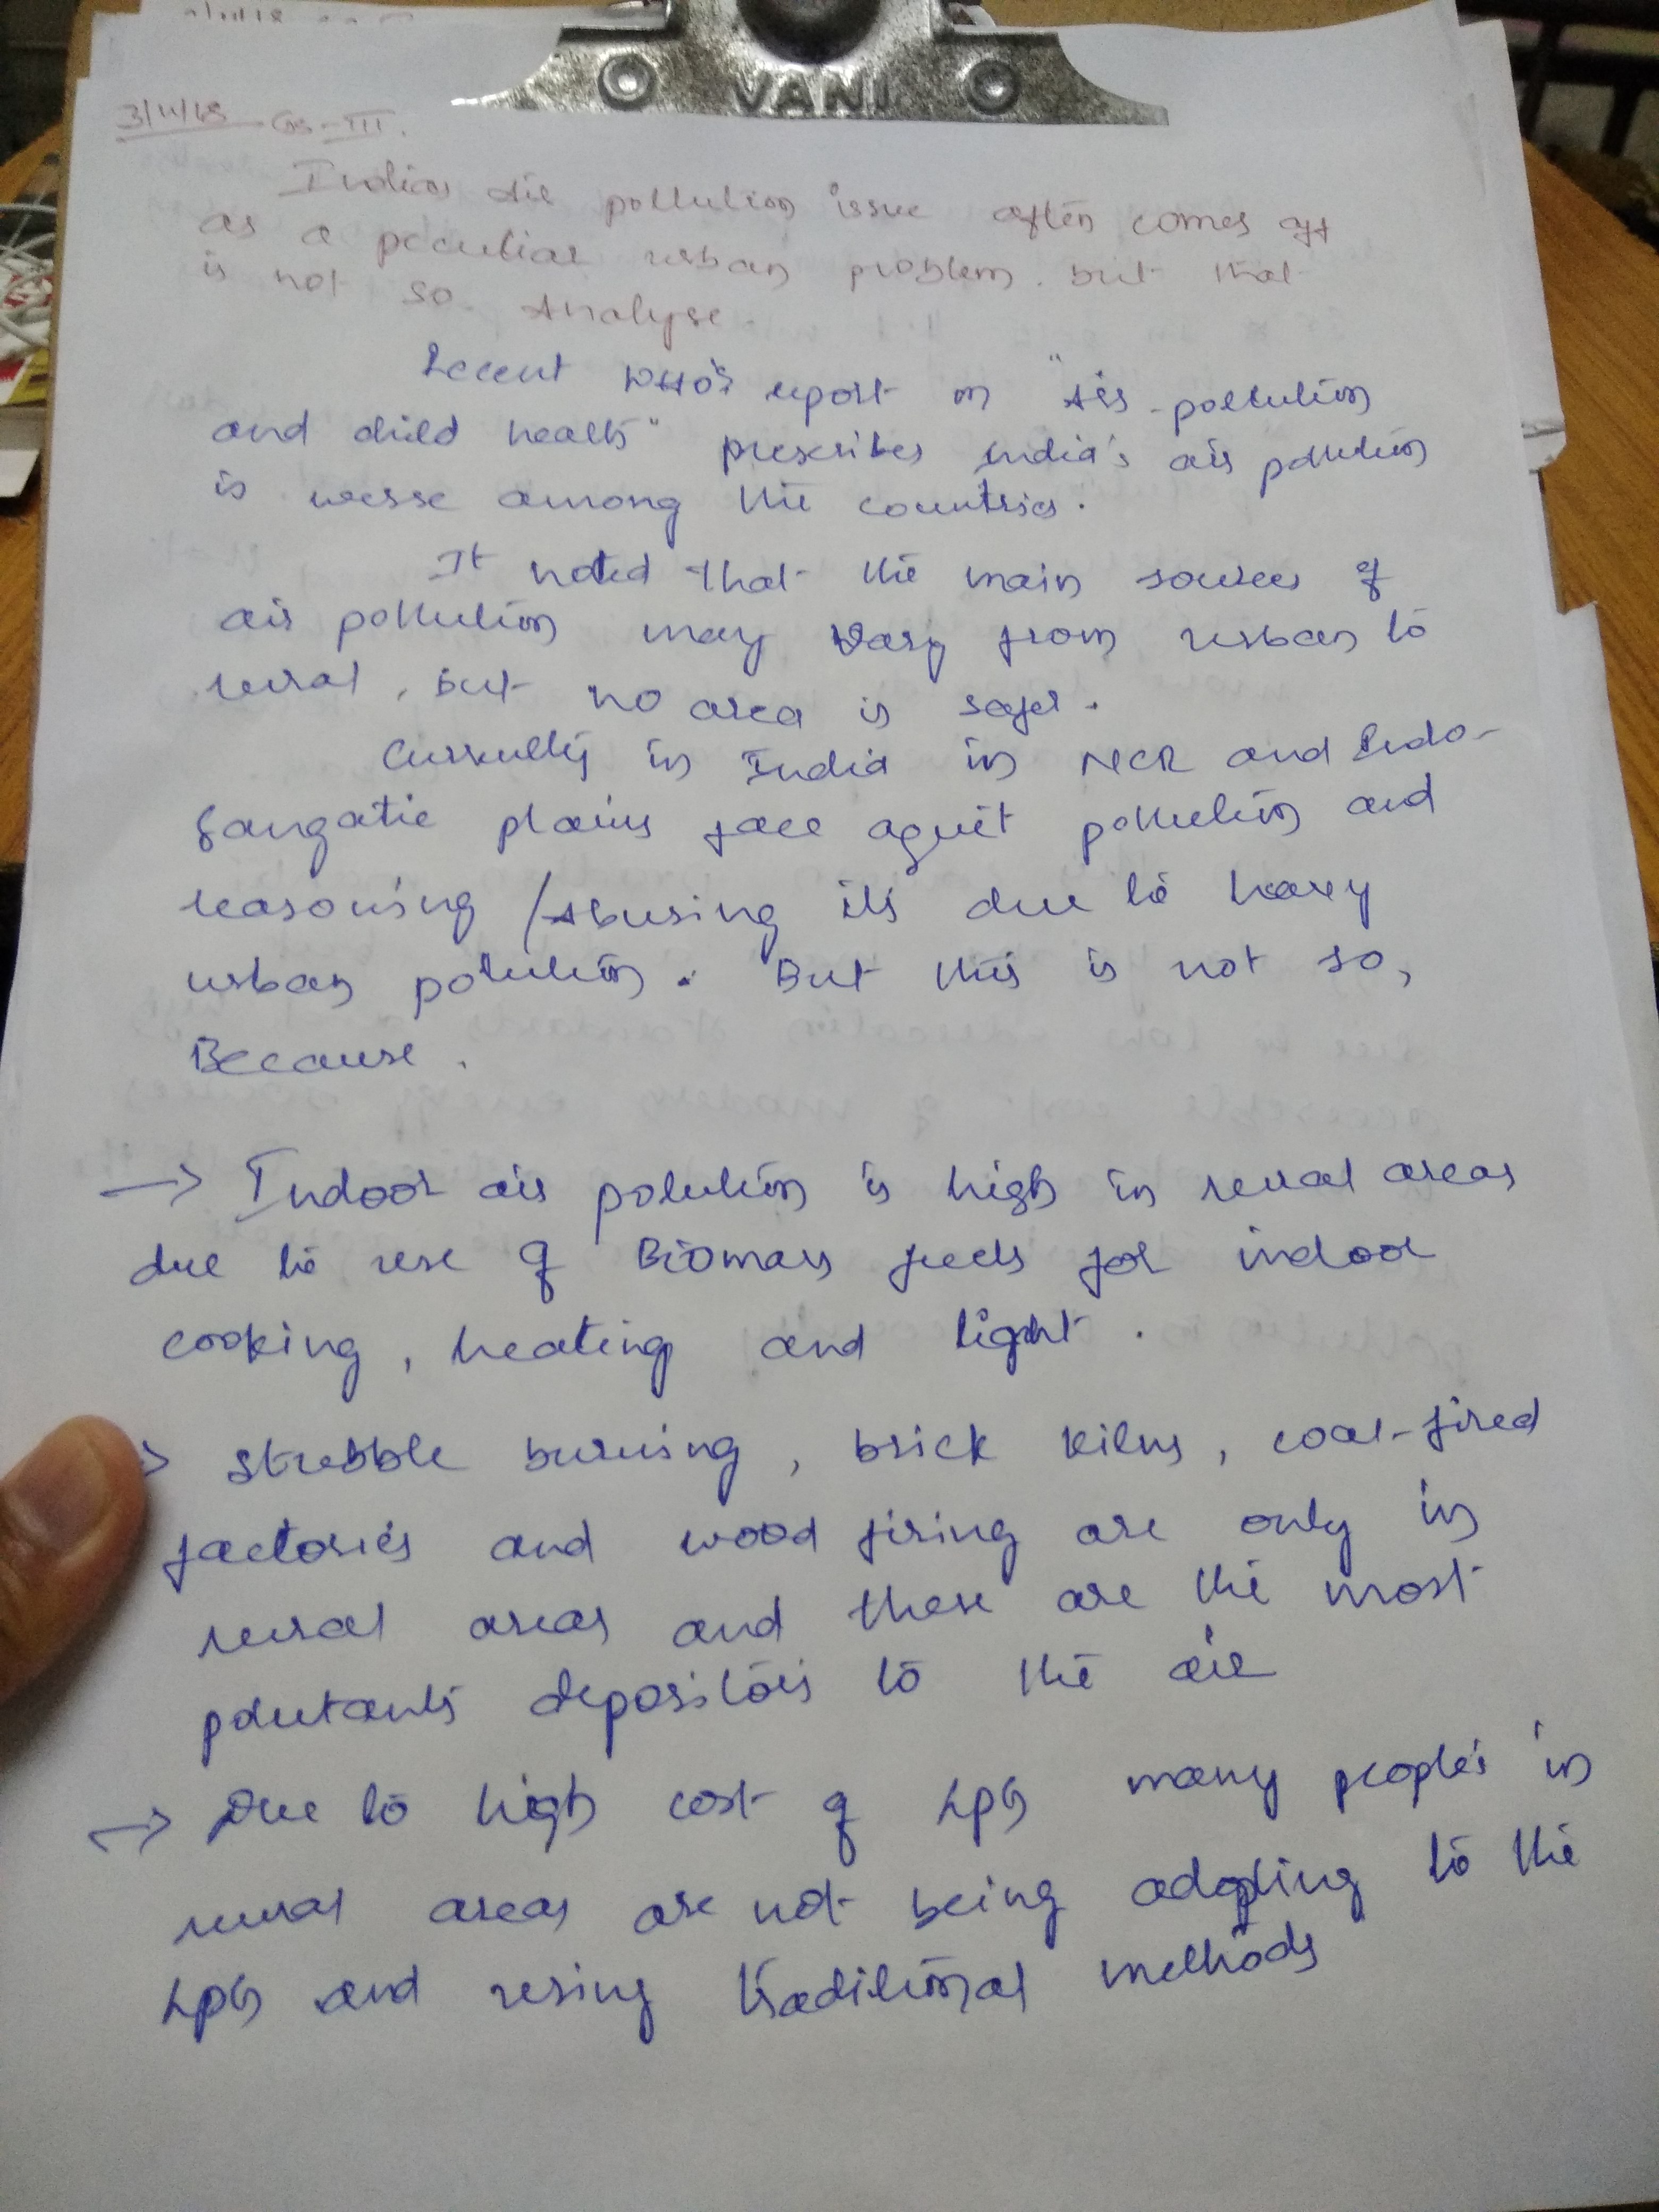 VANI
3/11/18 GS-III.
Indias Air pollution issue often comes off
as a peculiar urban problem. but that
is not so. Analyse.
Recent WHO's report on "Air pollution
and child health" prescribes India's air pollution
is worse among the countries.
It noted that the main sources of
air pollution may vary from urban to
rural, but no area is safer.
Currently in India in NCR and Indo-
Gangatic plains face pollution and
reasoning / Abusing it's due to heavy
urban polution. But this is not so,
Because.
→ Indoor air polution is high in rural areas
due to use of Biomass fuels for indoor
cooking, heating and light.
> Stubble burning, brick kilns, coal-fired
factories and wood firing are only in
rural areas and these are the most
polutants depositors to the air
→ Due to high cost of LPG many people's in
rural areas are not being adopting to the
LPG and using traditional methods